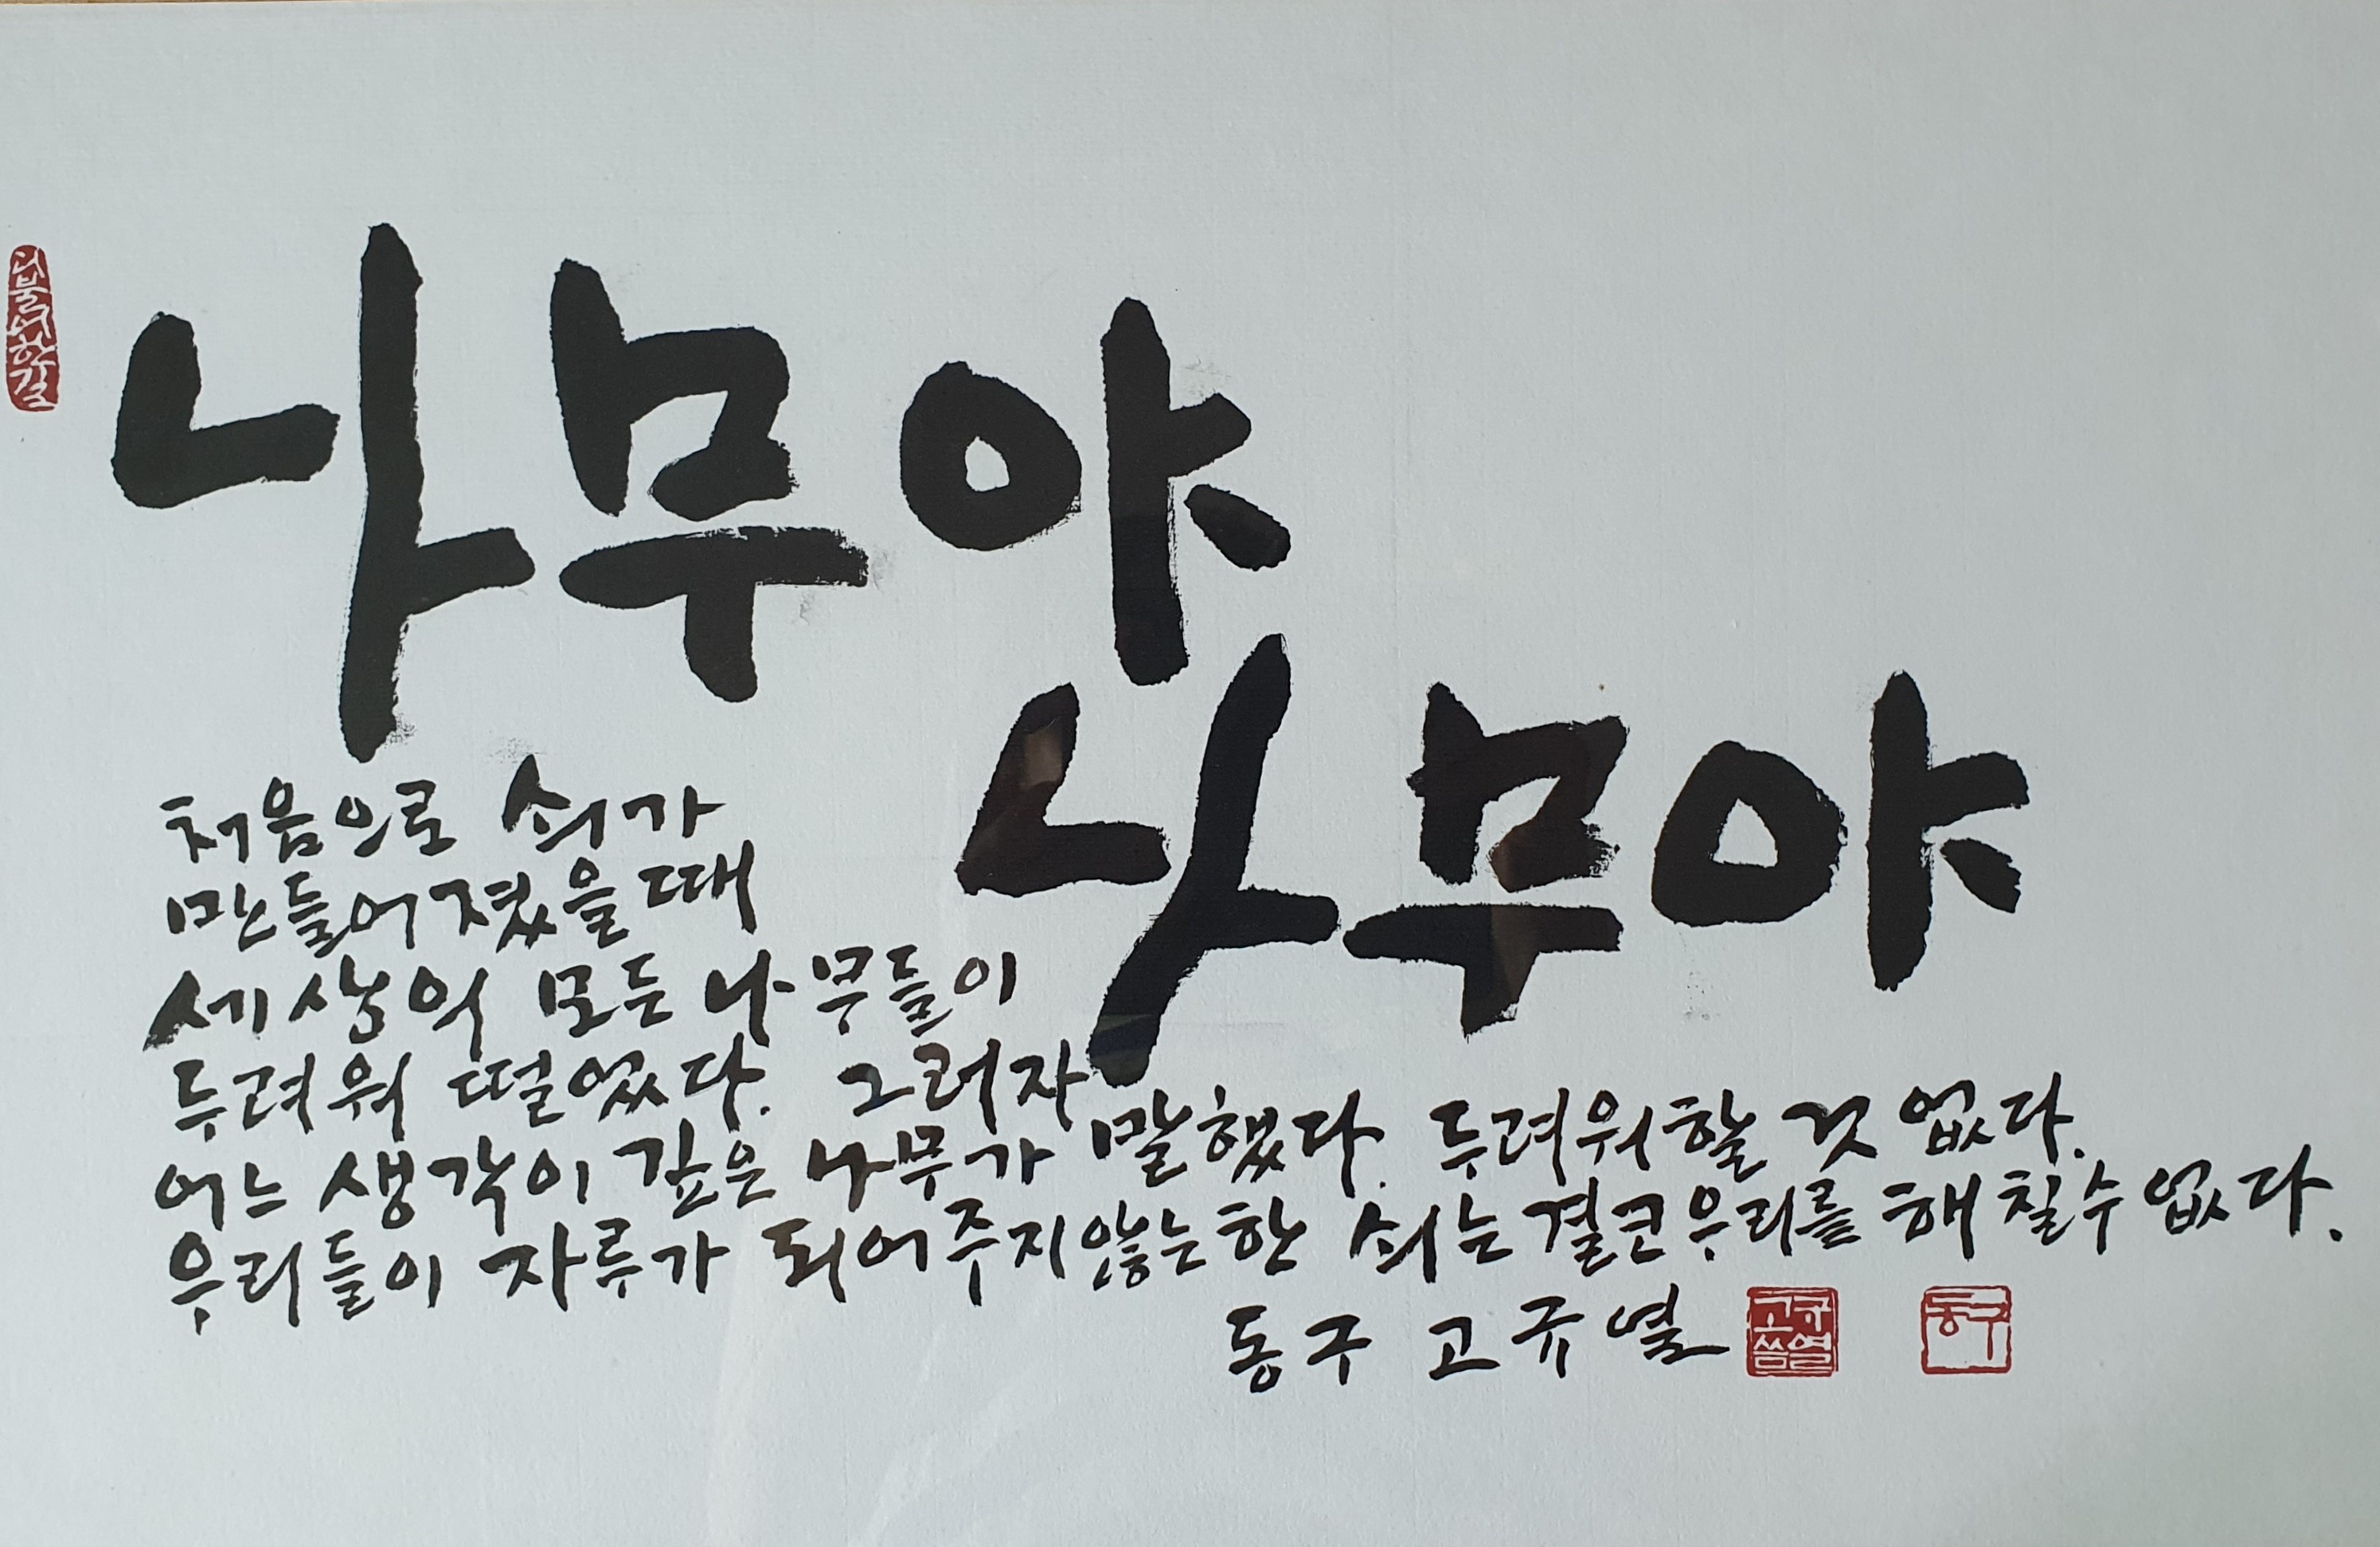 나무야
나무야
처음으로 쇠가
만들어졌을 때
세상의 모든 나무들이
두려워 떨었다. 그러자
어느 생각이 깊은 나무가 말했다. 두려워할 것 없다.
우리들이 자루가 되어주지 않는한 쇠는 결코 우리를 해칠 수 없다.
동구 고규열
고규열씀
동구